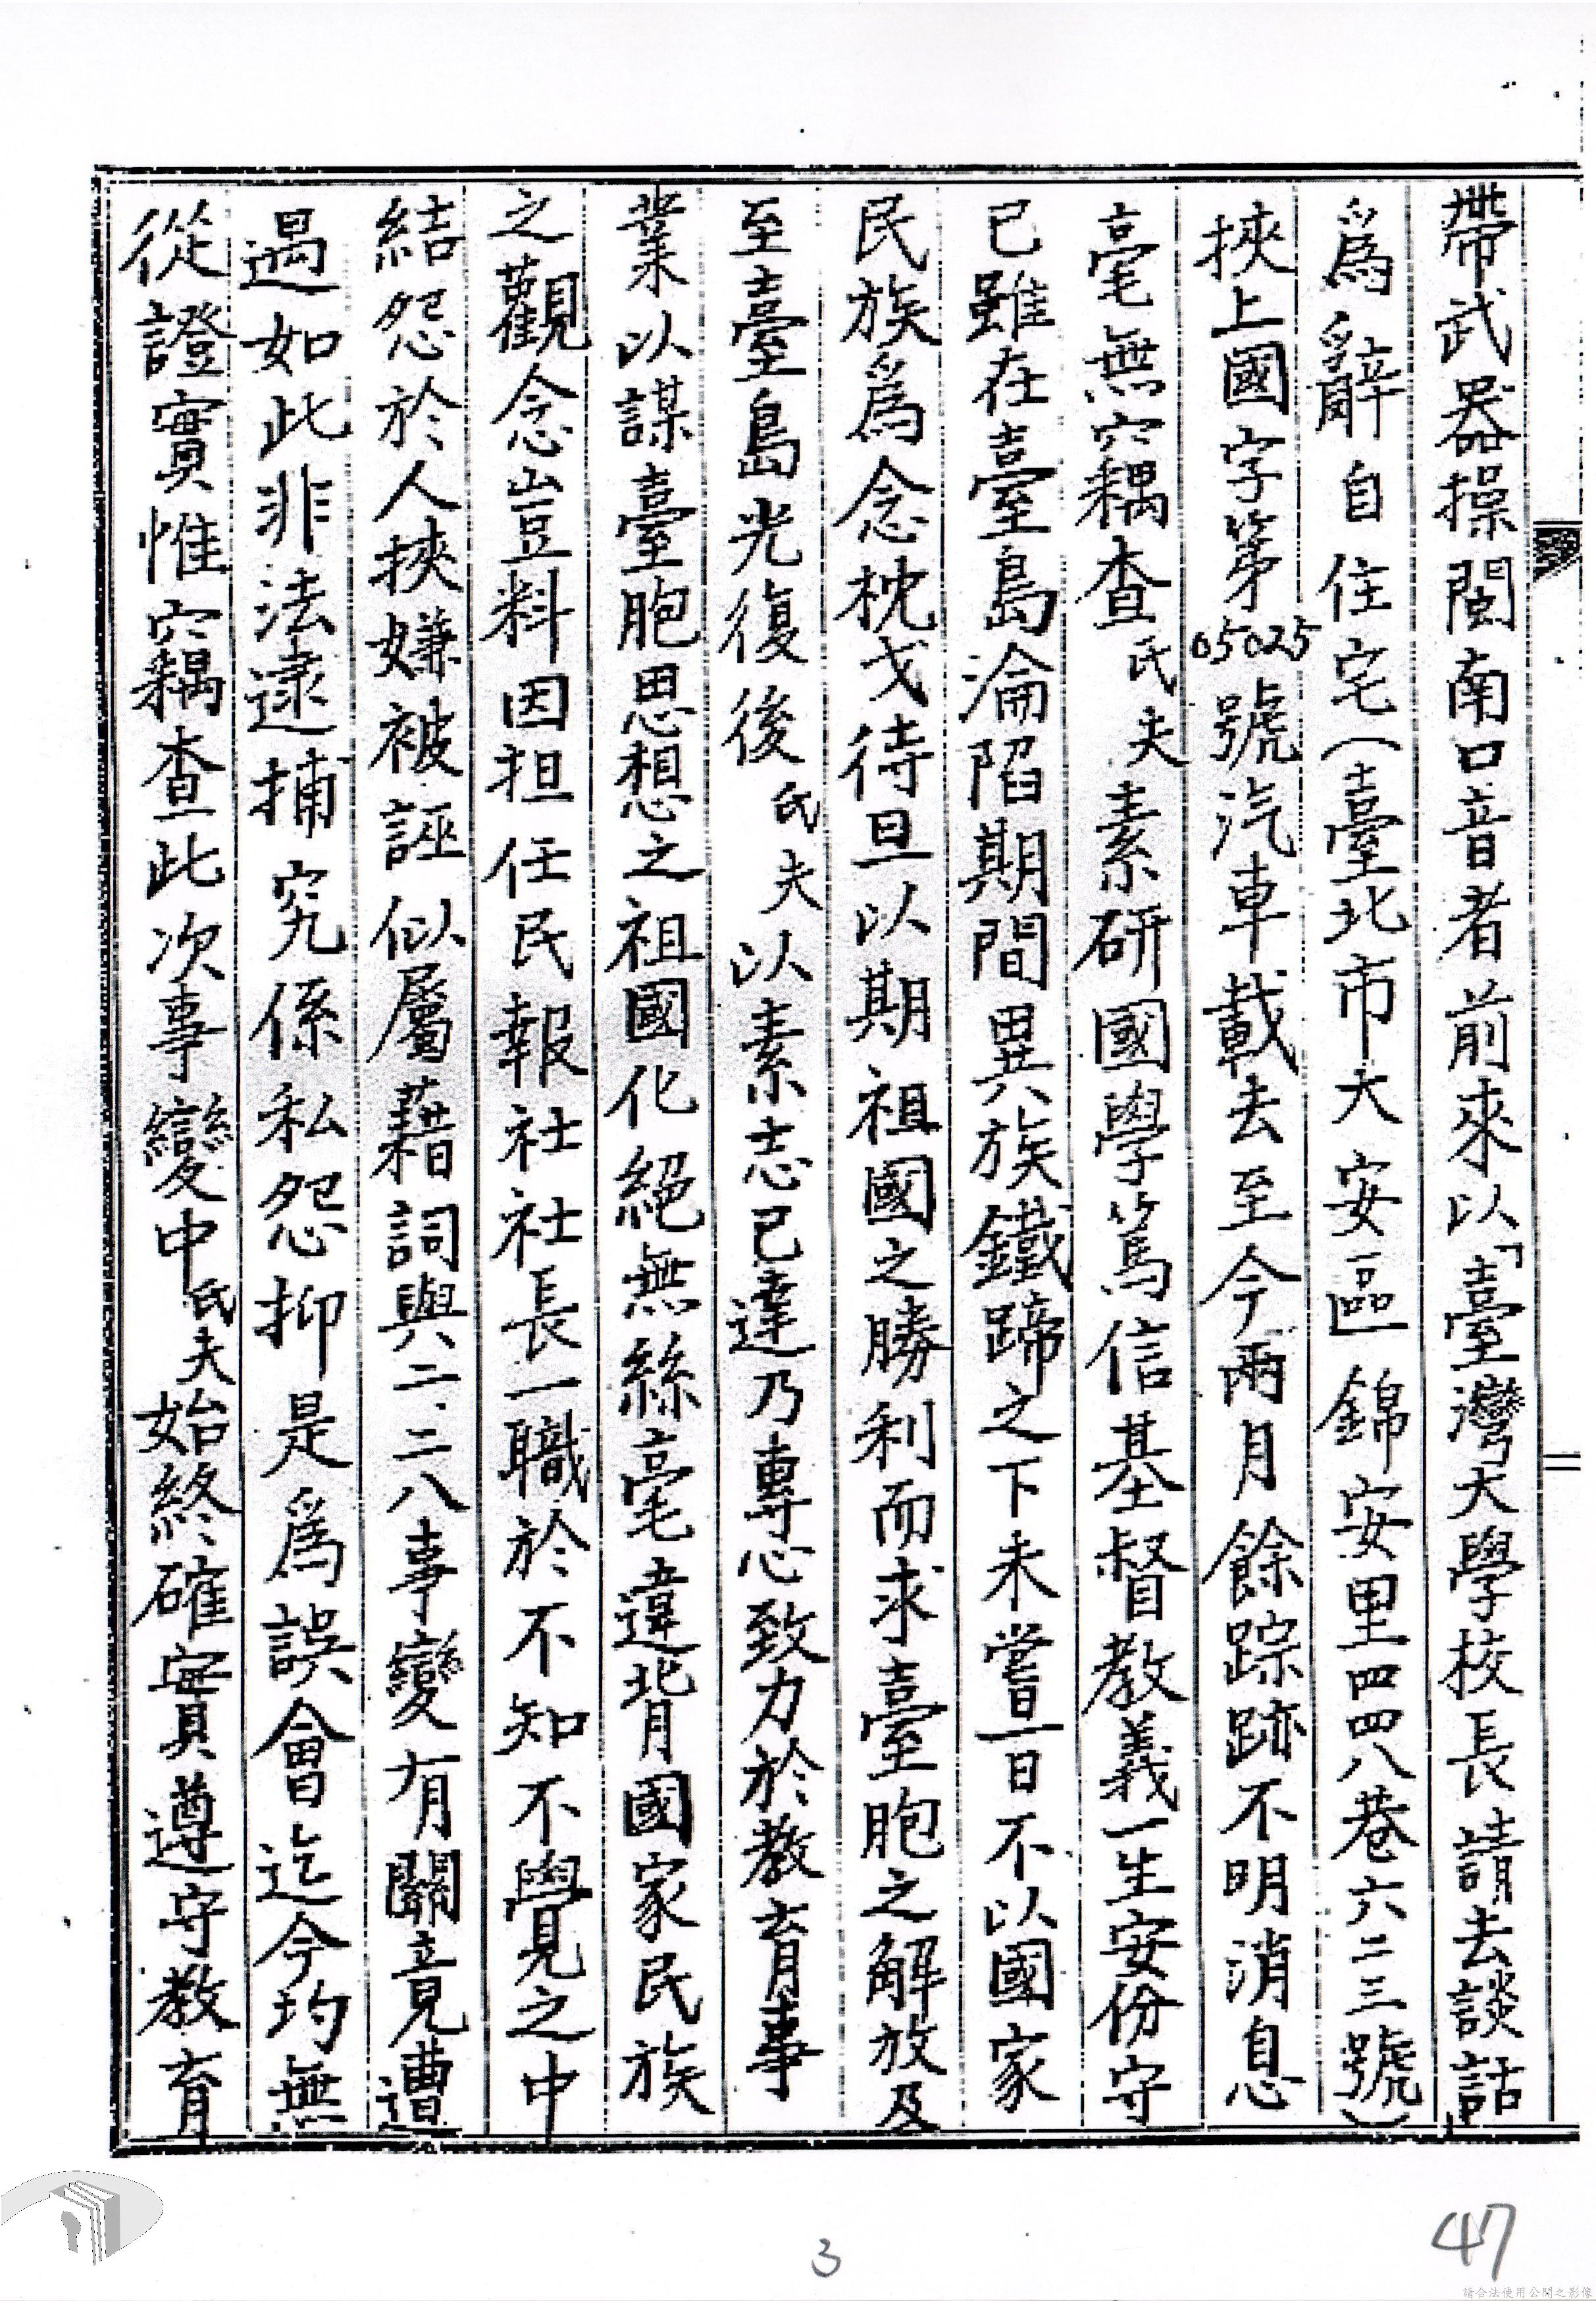 帶武器操閩南口音者前來以「臺灣大學校長請去談話」
爲辭自住宅(臺北市大安區錦安里四四八巷六二三號)
挾上國字第05025號汽車載去至今兩月餘踪跡不明消息
毫無窃耦查氏夫素研國學篤信基督教義一生安份守
已雖在臺島淪陷期間異族鐵蹄之下未嘗一日不以國家
民族爲念枕戈待旦以期祖國之勝利而求臺胞之解放及
至臺島光復後氏夫以素志已達乃專心致力於教育事
業以謀臺胞思想之祖國化絕無絲毫違背國家民族
之觀念豈料因担任民報社社長一職於不知不覺之中
結怨於人挾嫌被誣似屬藉詞與二.二八事變有關竟遭
遇如此非法逮捕究係私怨抑是爲誤會迄今均無
從證實惟窃耦查此次事變中氏夫始終確實遵守教育
3
47
請合法使用公開之影像